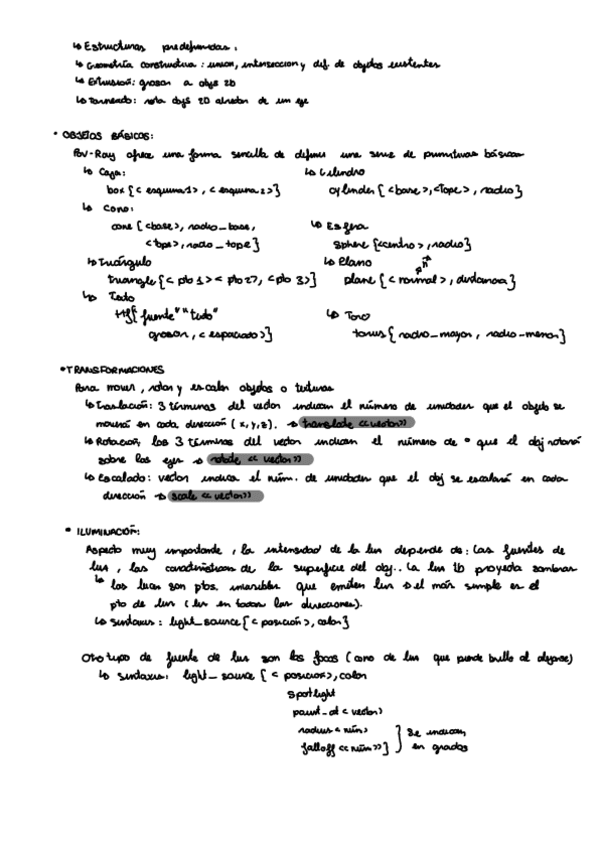 ↳ Estructuras predefinidas:
↳ Geometría constructiva: union, interseccion y dif. de objetos existentes
↳ Extrusión: grosor a objs 2D
↳ Torneado: rota objs 2D alrededor de un eje
• OBJETOS BÁSICOS:
Pov-Ray ofrece una forma sencilla de definir una serie de primitivas básicas
↳ Caja: ↳ Cilindro
box {< esquina1>, < esquina2>} cylinder {<base>, <tope>, radio}
↳ Cono: ↳ Esfera
cone {<base>, radio_base, sphere {<centro>, radio}
<tope>, radio_tope}
↳ Triángulo ↳ Plano
triangle {< pto 1> < pto 2>, <pto 3>} plane {< normal>, distancia}
↳ Texto ↳ Toro
ttf{"fuente" "texto" torus {radio_mayor, radio-menor}
grosor, < espaciado>}
• TRANSFORMACIONES
Para mover, rotar y escalar objetos o texturas
↳ Traslación: 3 términos del vector indican el número de unidades que el objeto se
moverá en cada dirección (x,y,z). → translate <<vector>>
↳ Rotación: los 3 términos del vector indican el número de º que el obj rotará
sobre los ejes → rotate << vector>>
↳ Escalado: vector indica el núm. de unidades que el obj se escalará en cada
dirección → scale << vector>>
• ILUMINACIÓN:
Aspecto muy importante, la intensidad de la luz depende de: las fuentes de
luz, las características de la superficie del obj.. La luz tb proyecta sombras
↳ las luces son ptos. invisibles que emiten luz → el más simple es el
pto de luz (luz en todas las direcciones).
↳ sintaxis: light_source {< posición>, color}
Otro tipo de fuente de luz son los focos (cono de luz que pierde brillo al alejarse)
↳ sintaxis: light_source {< posicion>, color
spotlight
point_at < vector>
radius < núm> se indican
falloff <<núm>>} en grados